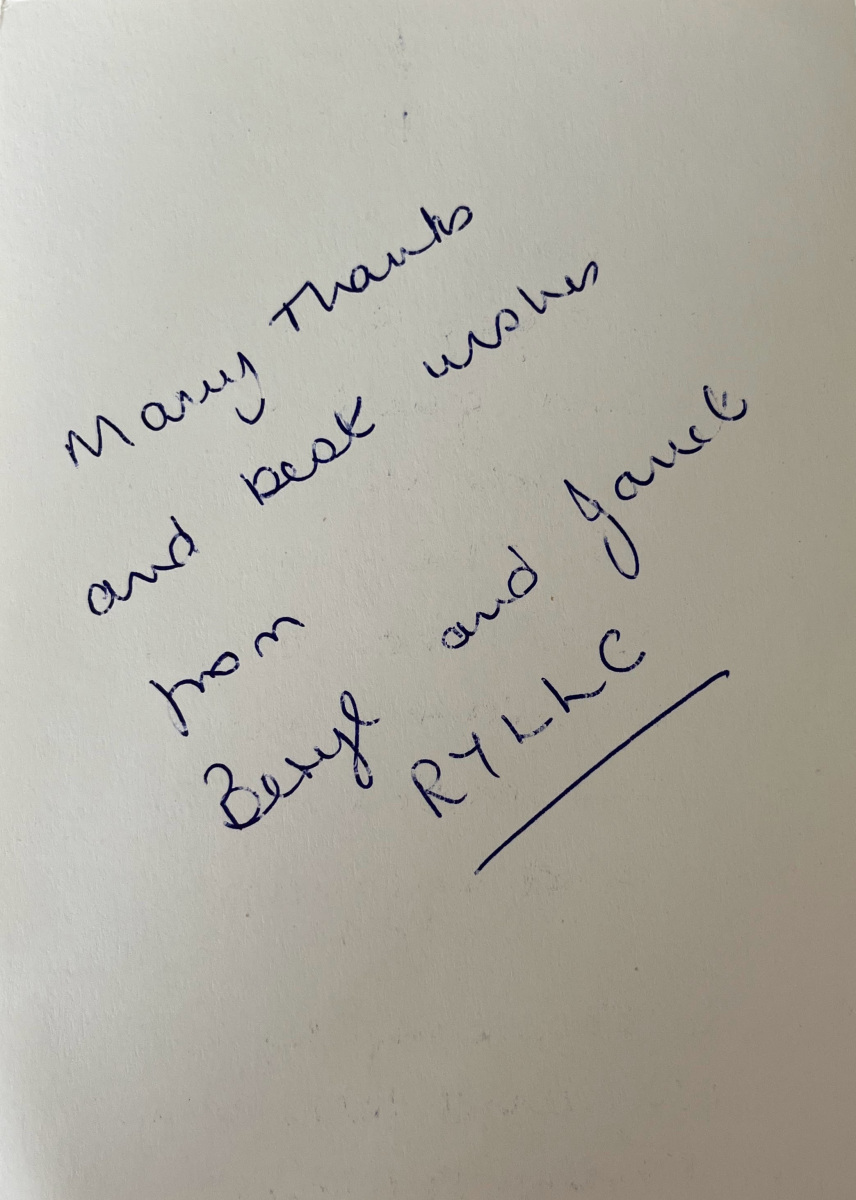 Many Thanks
and best wishes
from
Beryl and Janet
RYLLC